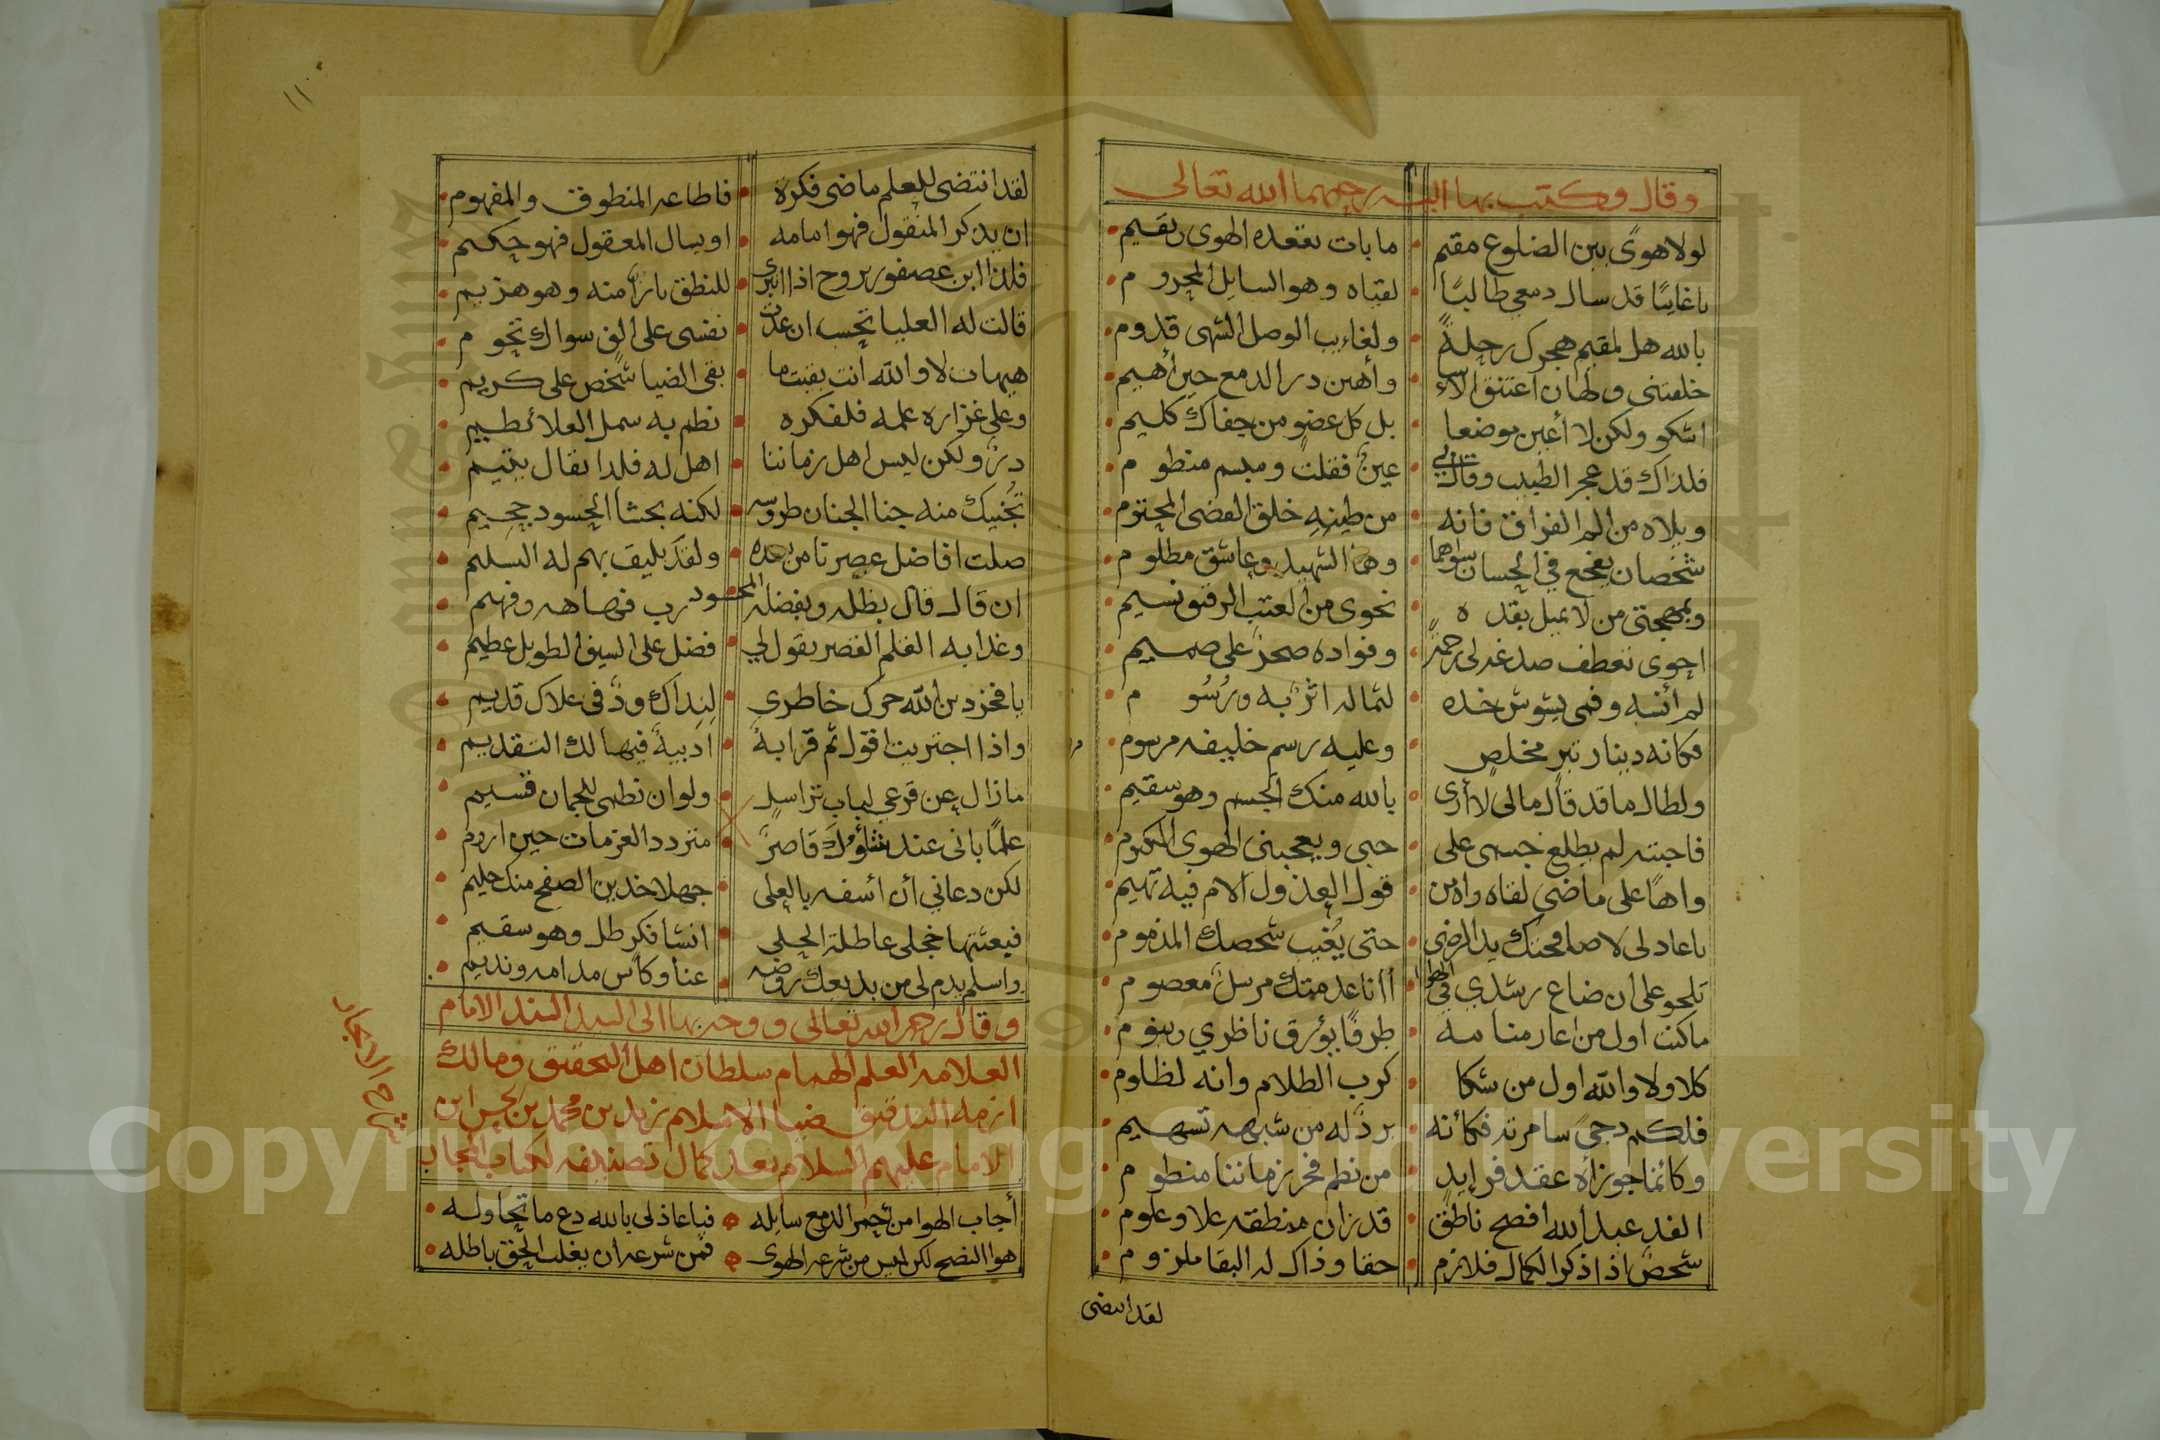 وقال وكتب بها اليه رحمهما الله تعالى
لولا هوىً بين الضلوع مقيم ما بات يقعده الهوى ويقيم
يا غائبًا قد سال دمعي طالبًا لقياه وهو السايل المحروم
بالله هل لمقيم هجرك رحلةً ولغايب الوصل الشهى قدوم
خلفتنى ولهان أعتنق الأسى وأهين در الدمع حين أهيم
اشكو ولكن لا أعين موضعا بل كل عضو من جفاك كليم
فلذاك قد عجز الطبيب وقال لي عين فقلت ومبسم منظوم
ويلاه من الم الفراق فانه من طينه خلق القضى المحتوم
شخصان يفجع في الحسان سواهما وهما الشهيد وعاشق مظلوم
وبمهجتى من لا يميل بقده نحوى من العتب الرقيق نسيم
احوى تعطف صدغه لى رحمةً وفواده صخرٌ على صميم
لم أنسه وفمى يشوش خده لثما له اثرٌ به ورُسُوم
فكانه دينار تبر مخلص وعليه رسم خليفه مرسوم
ولطال ما قد قال مالى لا أرى بالله منك الجسم وهو سقيم
فاجبته لم يطلع جسمى على حبى ويعجبنى الهوى المكتوم
واهًا على ماضى لقاه واه من قول العذول الام فيه تهيم
يا عاذلى لا صافحتك يد الرضى حتى يُغيب شخصك المذموم
تلحو على ان ضاع رشدي في الهوا أانا عدمتك مرسلٌ معصوم
ما كنت اول من اعار منامه طرفًا يؤرق ناظري ويقوم
كلا ولا والله اول من شكا كرب الظلام وانه لظلوم
فلكم دجىً سامرته فكأنه بردٌ له من شبهه تسهيم
وكأنما جوزاه عقد فرايد من نظم فخر زماننا منظوم
الفذ عبد الله افصح ناطق قد زان منطقه علا وعلوم
شخصٌ اذا ذكر الكمال فلازم حقا وذاك له البقا ملزوم
لقد انتضى
١١٠
لقد انتضى للعلم ماضى فكرة فاطاعه المنطوق والمفهوم
ان يذكر المنقول فهو امامه او يسال المعقول فهو حكيم
فلذا ابن عصفور يروح اذا انبرى للنطق بازًا منه وهو هزيم
قالت له العليا تحسب ان عدت نفسى على الف سواك تحوم
هيهات لا والله انت بقيت ما بقى الضيا شخص على كريم
وعلى غزارة علمه فلفكره نظم به سمل العلا
درٌ ولكن ليس اهل زماننا اهل له فلذا يقال يتيم
تجنيك منه جنا الجنان طروسه لكنه بحشا الحسود جحيم
صلت افاضل عصرنا من بعده ولقد يليق بهم له التسليم
ان قال قال بظله وبفضله المحسود رب فصاهه وفهيم
وغدا به القلم القصر يقول لي فضل على السيف الطويل عظيم
يا فخر دين الله حرك خاطري لنداك ودٌ فى علاك قديم
واذا اجتريت اقول ثم قرابة ادبيةً فيها لك التقديم
ما زال عن قرعى لباب تراسل ولو ان نظمى للجمان قسيم
علمًا بانى عند شأوك قاصرٌ متردد العزمات حين اروم
لكن دعاني أن أسفه بالعلى جهلا خدين الصفح منك حليم
فبعثتها خجلى عاطلة الحلي انشا فكر طل وهو سقيم
واسلم يدم لى من بديعك روضه غنا وكأس مدامه ونديم
وقال رحمه الله تعالى ووجه بها الى السيد السند الامام
العلامه العلم الهمام سلطان اهل التحقيق ومالك
ازمه التدقيق ضيا الاسلام زيد بن محمد بن الحسن ابن
الامام عليهم السلام بعد كمال تصنيفه لكتاب المجاب
أجاب الهوا من تحجر الدمع سايله فيا عاذلى بالله دع ما تحاوله
هو النصح لكن ليس من شرعه الهوى فمن شرعه ان يغلب الحق باطله
شرح الايجاز
Copyright © King Saud University